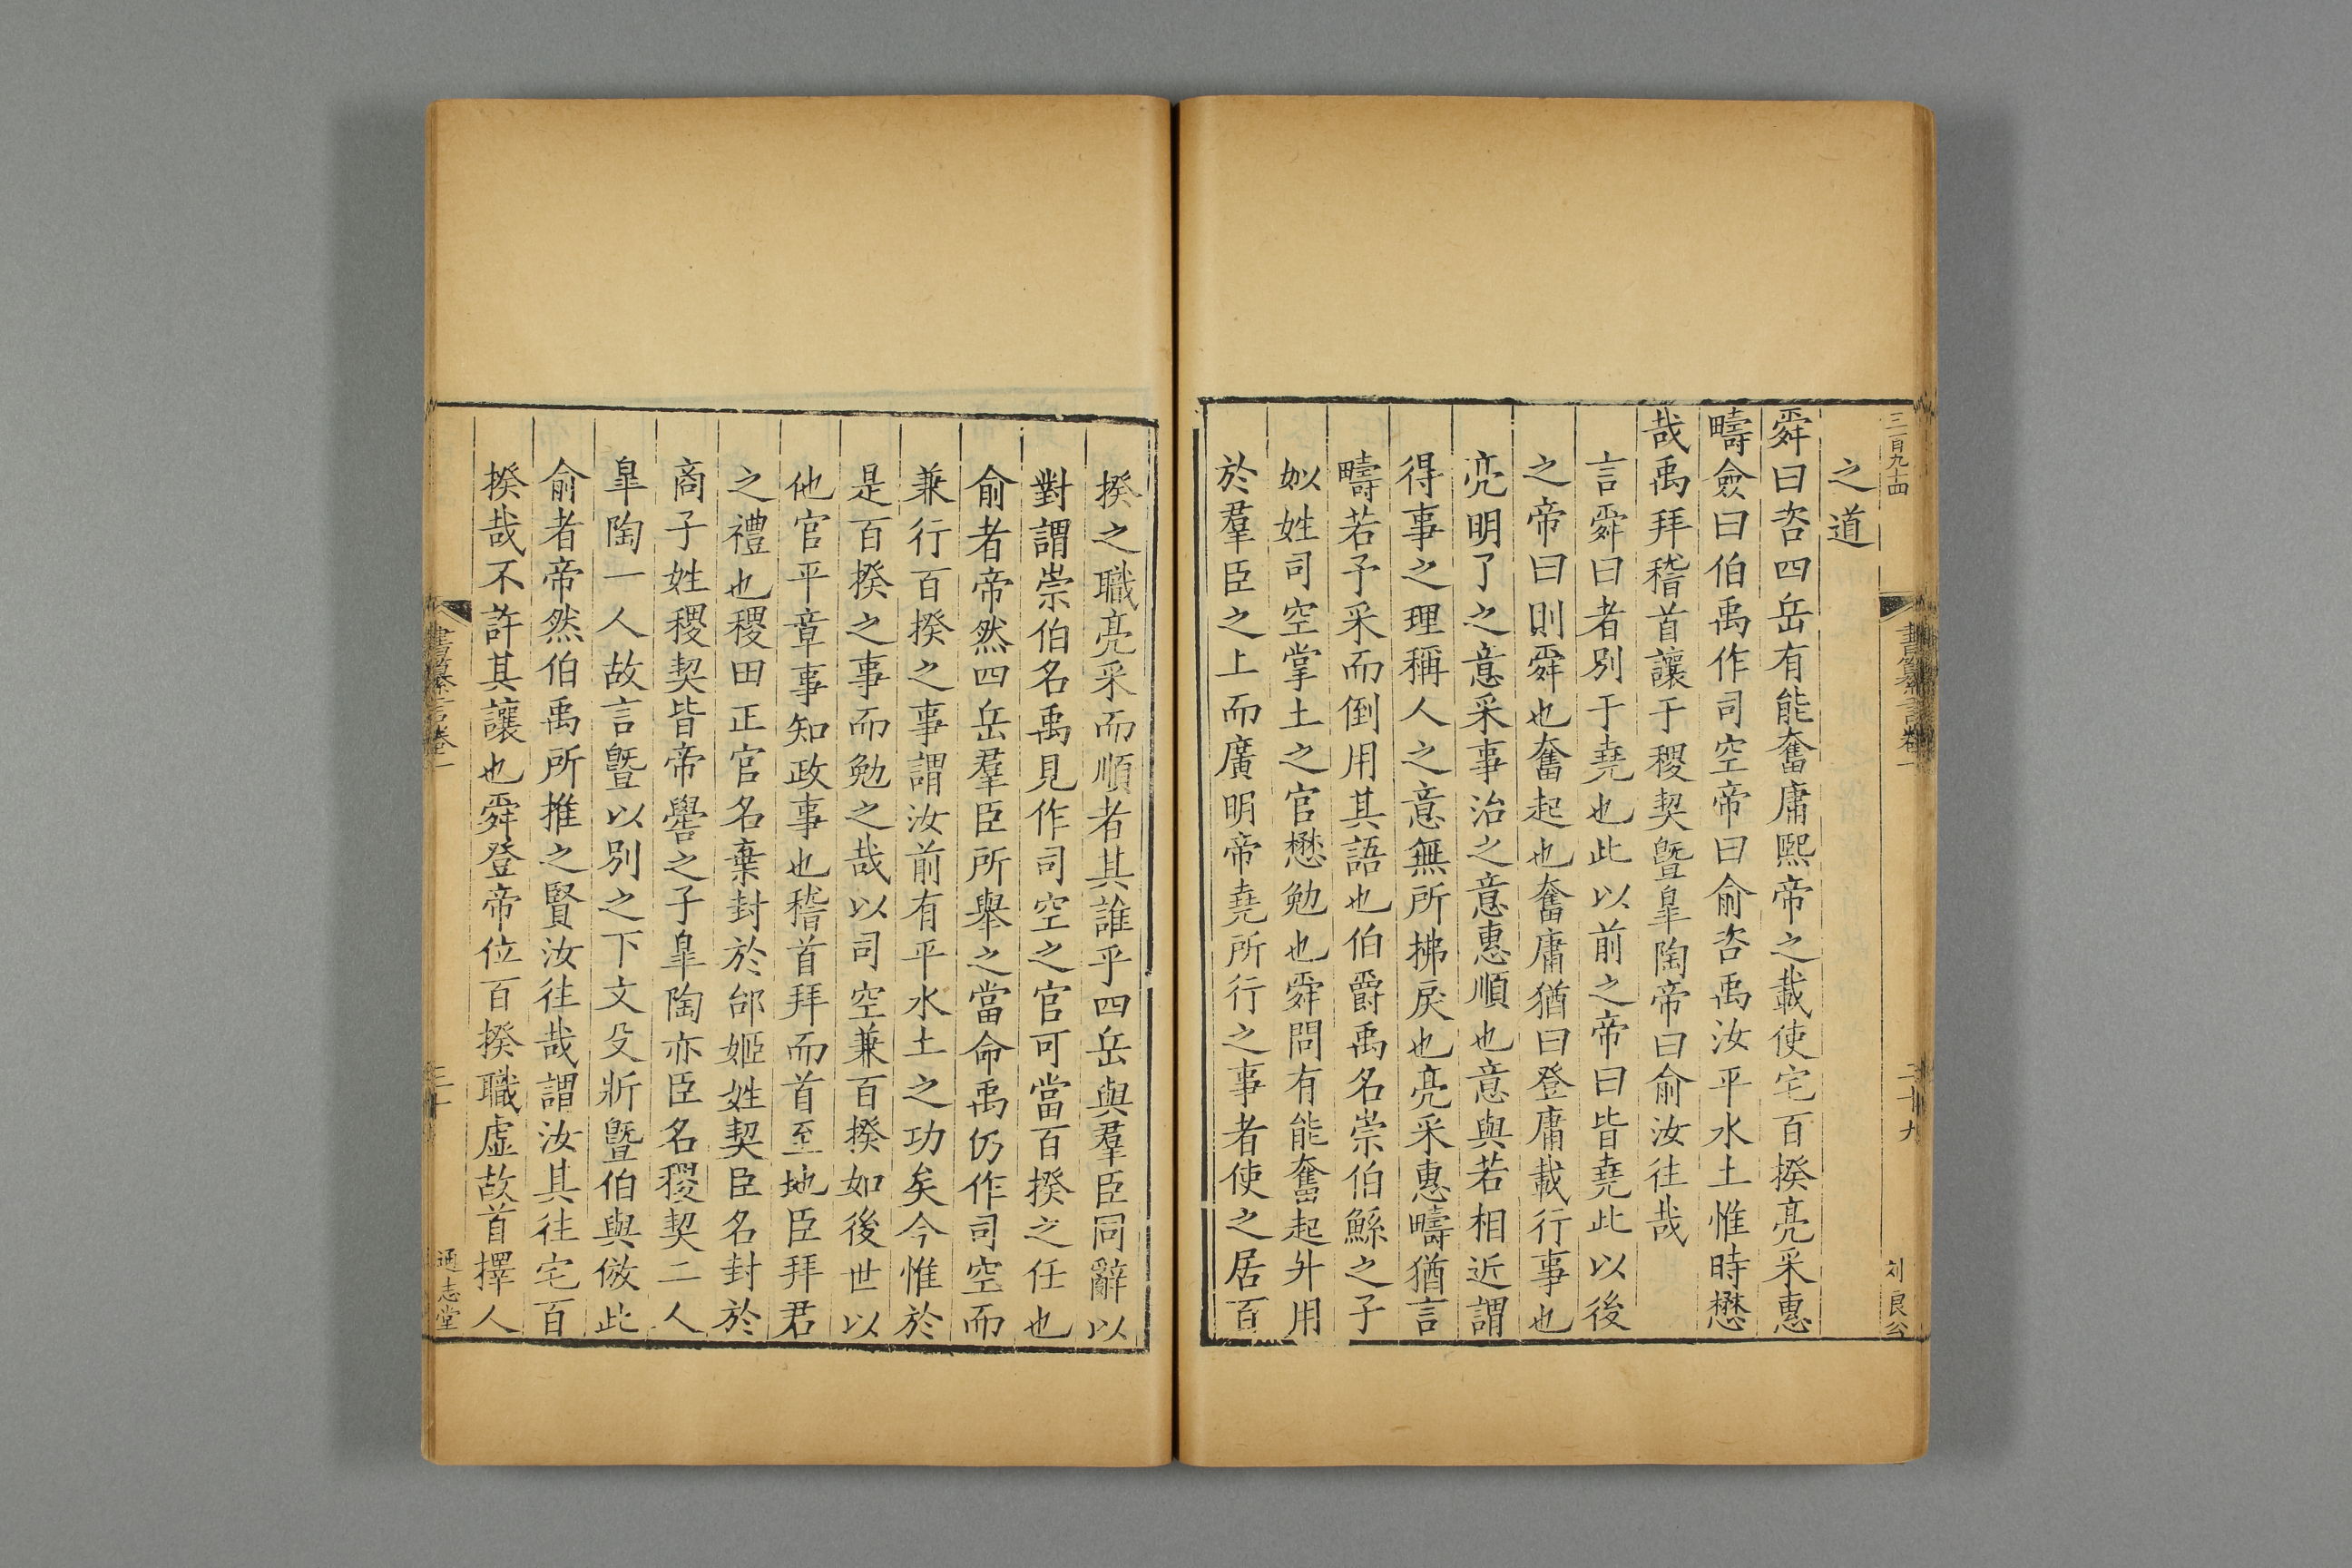 三百九十四
書纂言卷一
二十九
刘良公
之道
舜曰咨四岳有能奮庸熙帝之載使宅百揆亮采惠
疇僉曰伯禹作司空帝曰俞咨禹汝平水土惟時懋
哉禹拜稽首讓于稷契曁皐陶帝曰俞汝往哉
言舜曰者別于堯也此以前之帝曰皆堯此以後
之帝曰則舜也奮起也奮庸猶曰登庸載行事也
亮明了之意采事治之意惠順也意與若相近謂
得事之理稱人之意無所拂戾也亮采惠疇猶言
疇若予采而倒用其語也伯爵禹名崇伯鯀之子
姒姓司空掌土之官懋勉也舜問有能奮起升用
於羣臣之上而廣明帝堯所行之事者使之居百
揆之職亮采而順者其誰乎四岳與羣臣同辭以
對謂崇伯名禹見作司空之官可當百揆之任也
俞者帝然四岳羣臣所舉之當命禹仍作司空而
兼行百揆之事謂汝前有平水土之功矣今惟於
是百揆之事而勉之哉以司空兼百揆如後世以
他官平章事知政事也稽首拜而首至地臣拜君
之禮也稷田正官名棄封於邰姬姓契臣名封於
商子姓稷契皆帝嚳之子皐陶亦臣名稷契二人
皐陶一人故言曁以別之下文殳斨曁伯與倣此
俞者帝然伯禹所推之賢汝往哉謂汝其往宅百
揆哉不許其讓也舜登帝位百揆職虛故首擇人
書纂言卷一
三十
通志堂